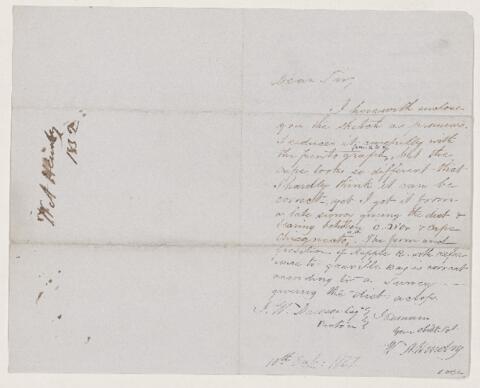 Dear Sir,
I herewith enclose
you the sketch as promised.
I reduced it carefully with
the pentograph, but the
cape looks so different that
I hardly think it can be
correct, yet I got it from
a late survey giving the dist &
bearing between C. D'Or & Cape
Chegnecto. The form and
position of Apple R. with refer-
ence to Granville Bay is correct
according to a survey
giving the dist across.
J. W. Dawson Esq
Pictou
I remain
Your Obdt St
W. A. Hendry
10th
W. A. Hendry
1852